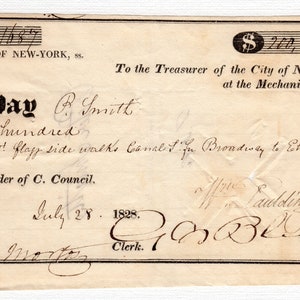 1687
$ 200
OF NEW-YORK, ss.
To the Treasurer of the City of N
at the Mechani
Pay P. Smith
hundred
flagg side walks Canal St. Broadway to
der of C. Council.
July 28 1828.
Morton
Clerk.